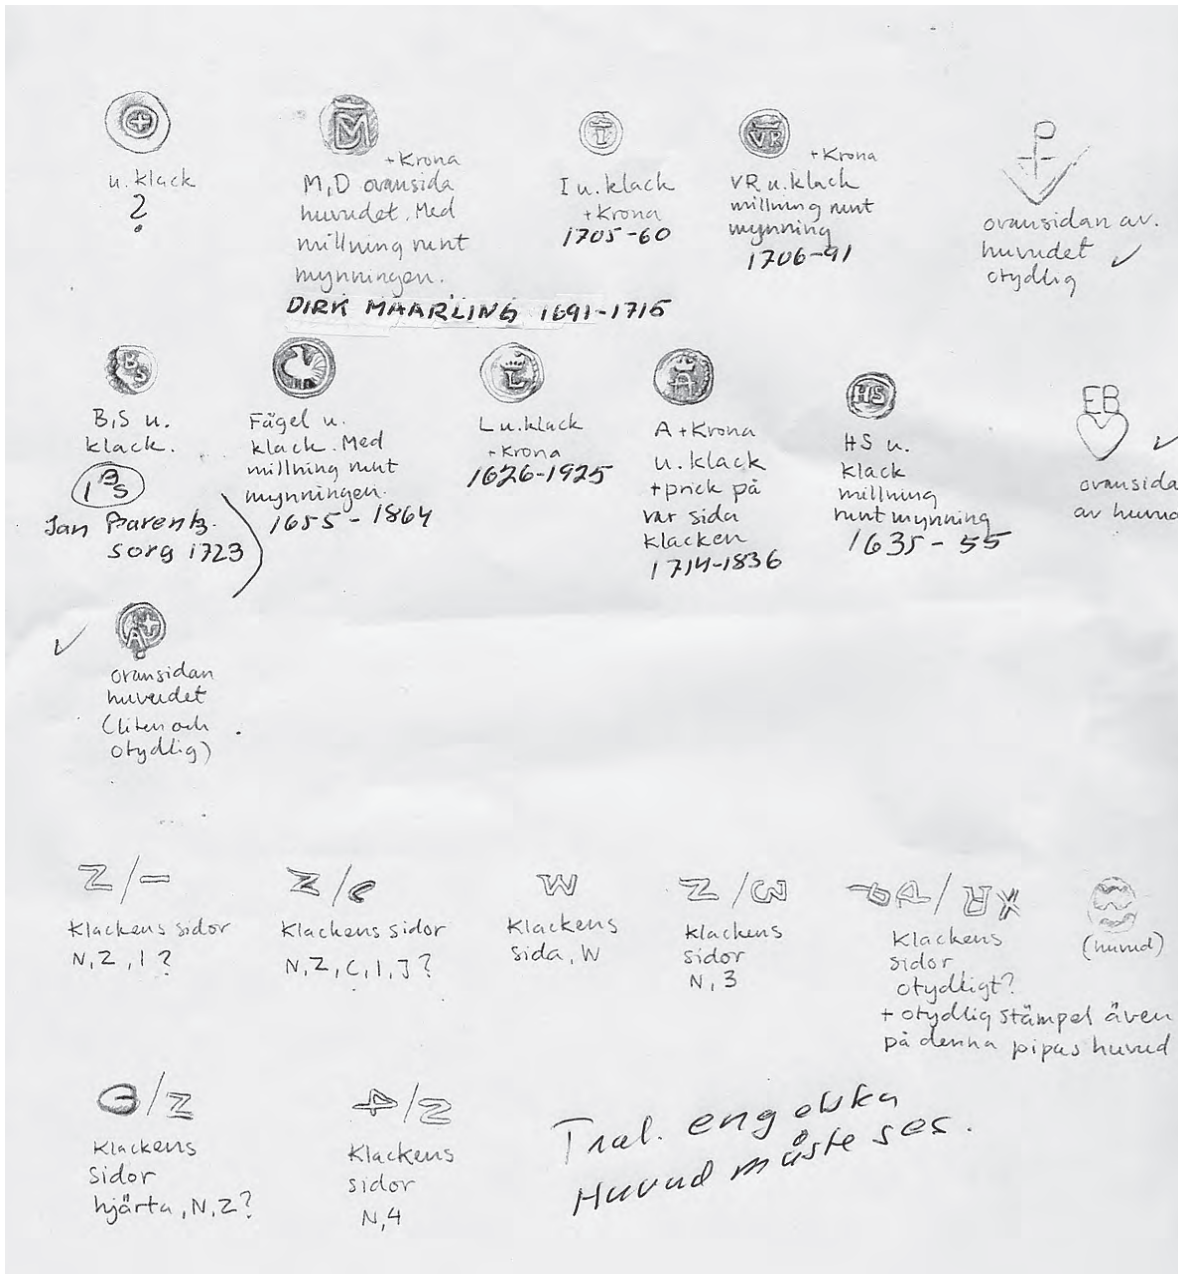 u. klack
?
M
+Krona
M,D ovansida
huvudet. Med
millning runt
mynningen.
DIRK MAARLING 1691-1715
I
I u. klack
+Krona
1705-60
VR
+Krona
VR u. klack
millning runt
mynning
1706-91
ovansidan av.
huvudet
otydlig
BS
B,S u.
klack.
IBS
Jan Barentz.
sorg 1723
Fågel u.
klack. Med
millning runt
mynningen.
1655-1864
L
L u. klack
+Krona
1626-1925
A
A+Krona
u. klack
+prick på
var sida
klacken
1714-1836
HS
HS u.
klack
millning
runt mynning
1635-55
EB
ovansida
av huvud
A+
ovansidan
huvudet
(liten och
otydlig)
Z/-
Klackens sidor
N,Z,I?
Klackens sidor
N,Z,C,I,J?
W
Klackens
sida, W
Klackens
sidor
N,3
Klackens
sidor
otydligt?
+ otydlig stämpel även
på denna pipas huvud
(huvud)
Klackens
sidor
hjärta, N,Z?
4/Z
Klackens
sidor
N,4
engelska
Huvud måste ses.